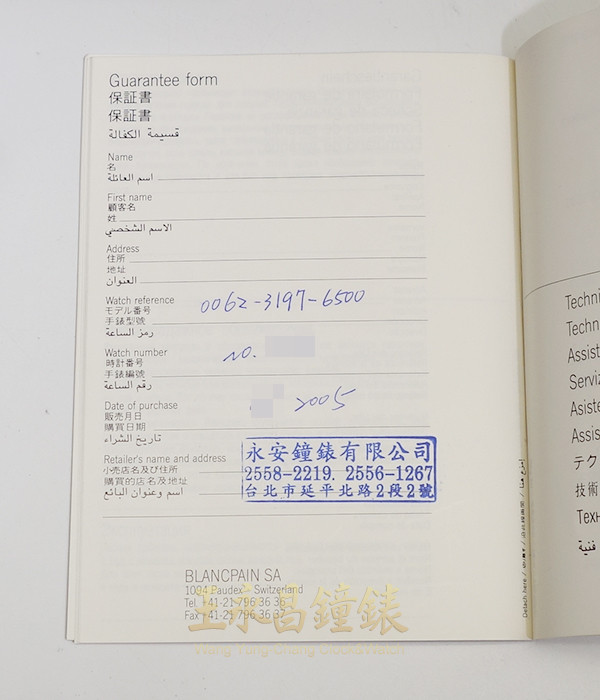 Guarantee form
保証書
保証書
قسيمة الكفالة
Name
名
اسم العائلة
First name
顧客名
姓
الاسم الشخصي
Address
住所
地址
العنوان
Watch reference
モデル番号
手錶型號
رمز الساعة
0062-3197-6500
Watch number
時計番号
手錶編號
رقم الساعة
no.
Date of purchase
販売月日
購買日期
تاريخ الشراء
2005
Retailer's name and address
小売店名及び住所
購買的店名及地址
اسم وعنوان البائع
永安鐘錶有限公司
2558-2219. 2556-1267
台北市延平北路2段2號
BLANCPAIN SA
1094 Paudex - Switzerland
Tel +41-21-796 36 36
Fax +41-21-796 36 37
王永昌鐘錶
Detach here /
Techni
Techn
Assist
Serviz
Asiste
Assis
テク
技術
Техн
فنية